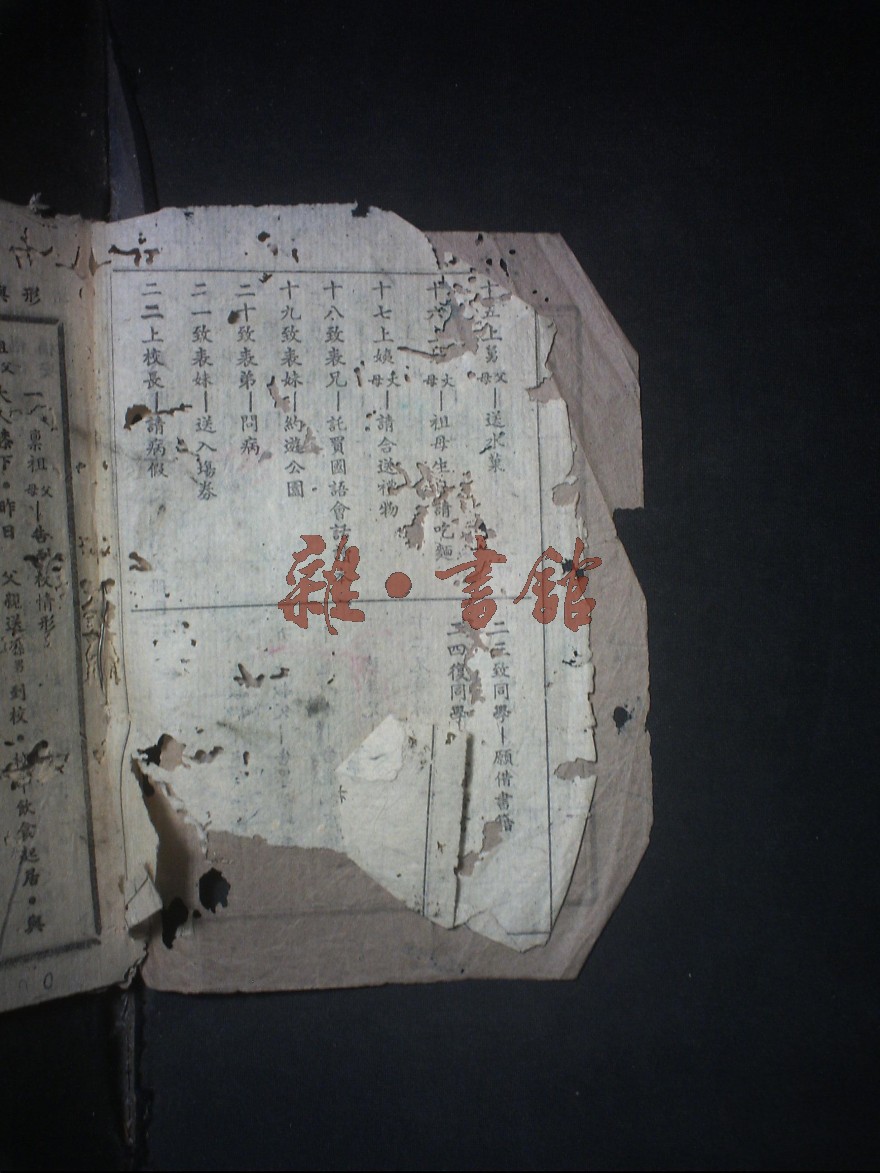 十五上舅父母—送水菓
十六上 —祖母生 請吃麵
十七上姨丈母—請合送禮物
十八致表兄—託買國語會話
十九致表妹—約遊公園
二十致表弟—問病
二一致表妹—送入塲券
二二上校長—請病假
二三致同學—願借書籍
二四復同學
一 稟祖父母—告 校情形
大人膝下。昨日 父親送 到校。 飲食起居。與
形
雜·書館